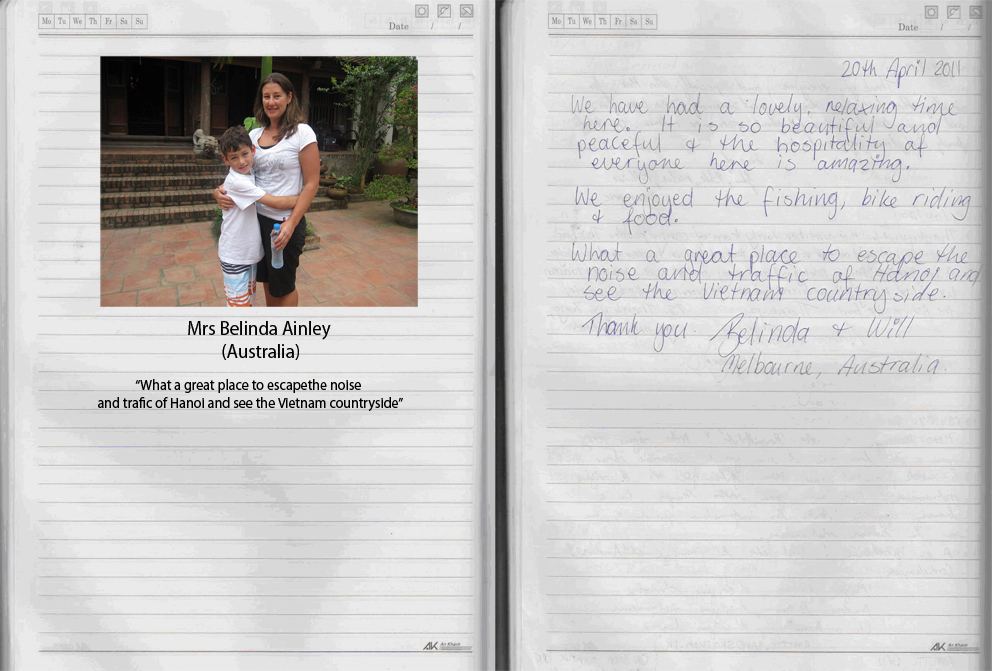 Mo Tu We Th Fr Sa Su
Date / /
Mrs Belinda Ainley
(Australia)
“What a great place to escapethe noise
and trafic of Hanoi and see the Vietnam countryside”
Mo Tu We Th Fr Sa Su
Date / /
20th April 2011
We have had a lovely, relaxing time
here. It is so beautiful and
peaceful & the hospitality of
everyone here is amazing.
We enjoyed the fishing, bike riding
& food.
What a great place to escape the
noise and traffic of Hanoi and
see the Vietnam countryside.
Thank you. Belinda & Will
Melbourne, Australia.